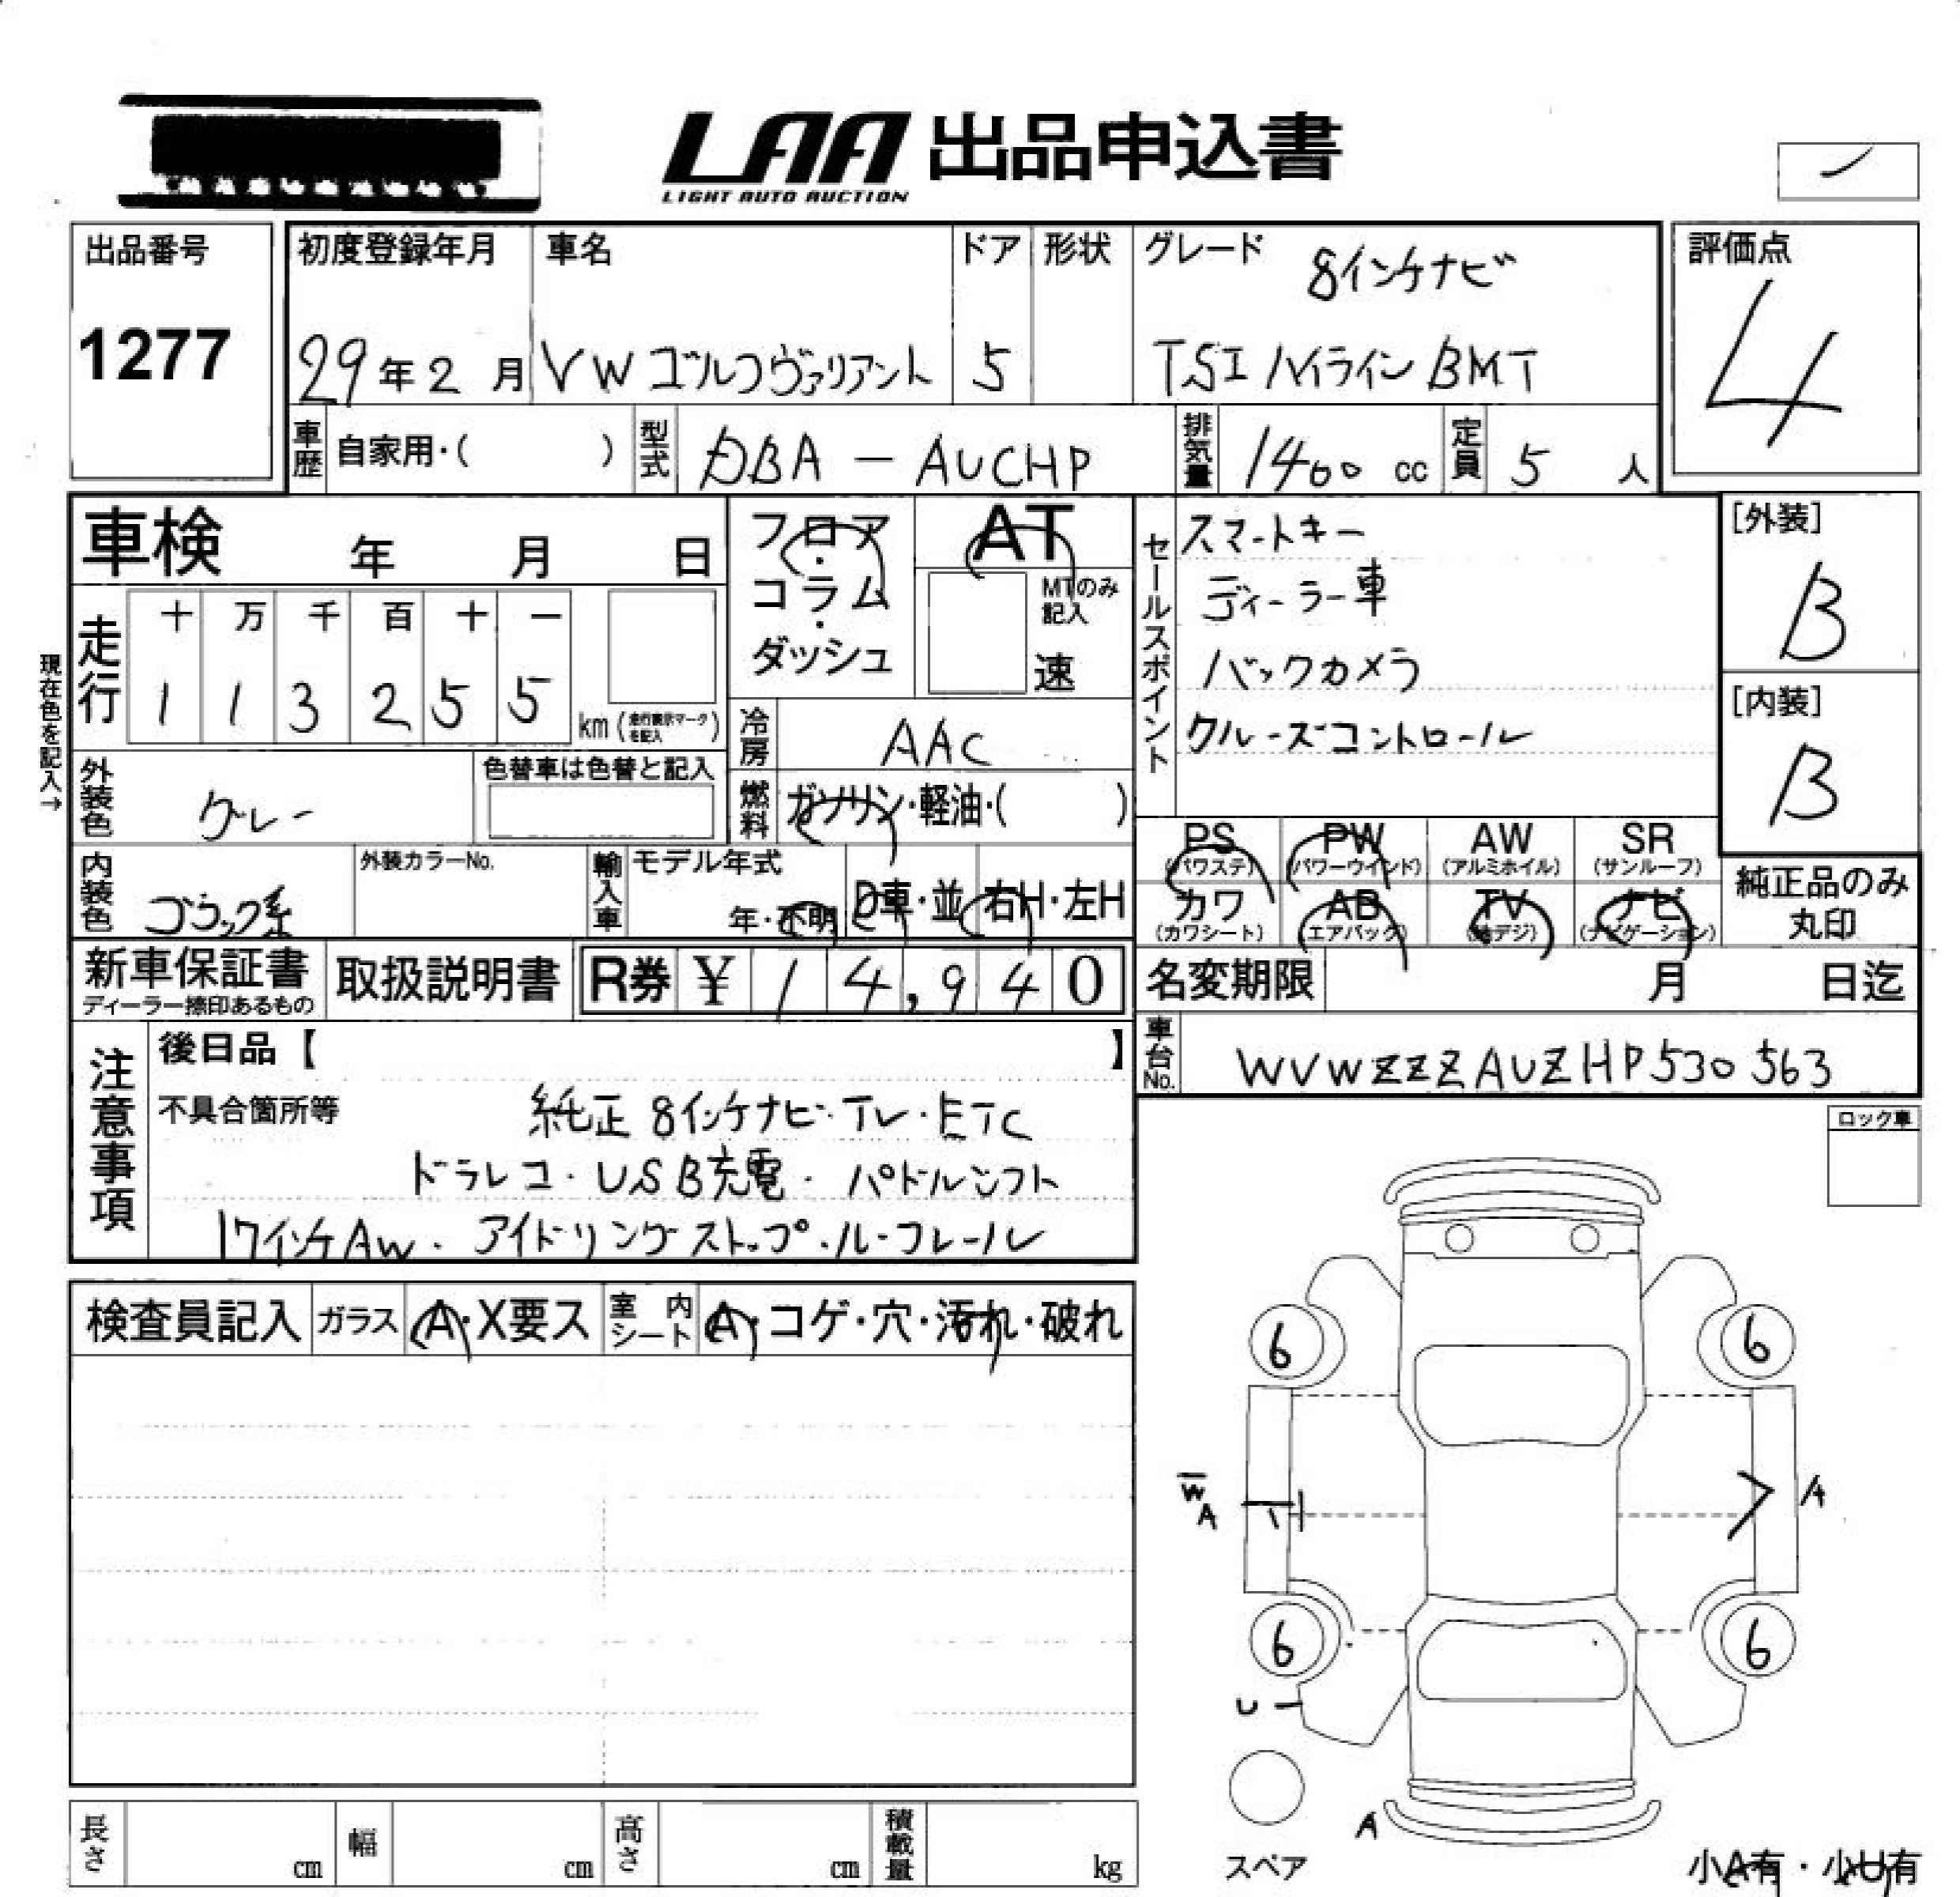 LAA 出品申込書
LIGHT AUTO AUCTION
出品番号
1277
初度登録年月 車名 ドア 形状 グレード 8インチナビ
29年2月 VW ゴルフヴァリアント 5 TSI ハイライン BMT
評価点
4
車歴 自家用・( ) 型式 DBA - AUCHP 排気量 1400 cc 定員 5 人
車検 年 月 日
フロア・コラム・ダッシュ
AT
MTのみ記入
速
セールスポイント
スマートキー
ディーラー車
バックカメラ
クルーズコントロール
[外装]
B
[内装]
B
現在色を記入→
走行 十 万 千 百 十 一
1 1 3 2 5 5 km (走行表示マークを記入)
冷房 AAC
外装色 グレー 色替車は色替と記入
燃料 ガソリン・軽油・( )
内装色 ブラック系 外装カラーNo. 輸入車 モデル年式 年・不明 D車・並 右H・左H
PS (パワステ) PW (パワーウインド) AW (アルミホイル) SR (サンルーフ)
カワ (カワシート) AB (エアバック) TV (地デジ) ナビ (ナビゲーション)
純正品のみ丸印
新車保証書 ディーラー捺印あるもの 取扱説明書 R券 ¥ 14,940
名変期限 月 日迄
車台No. WVWZZZAUZHP530563
注意事項
後日品【 】
不具合箇所等 純正 8インチナビ・TV・ETC
ドラレコ・USB充電・パドルシフト
17インチAW・アイドリングストップ・ルーフレール
ロック車
検査員記入 ガラス A・X要ス 室内シート A・コゲ・穴・汚れ・破れ
6 6
W A A
6 6
U
A
スペア
小A有・小U有
長さ cm 幅 cm 高さ cm 積載量 kg